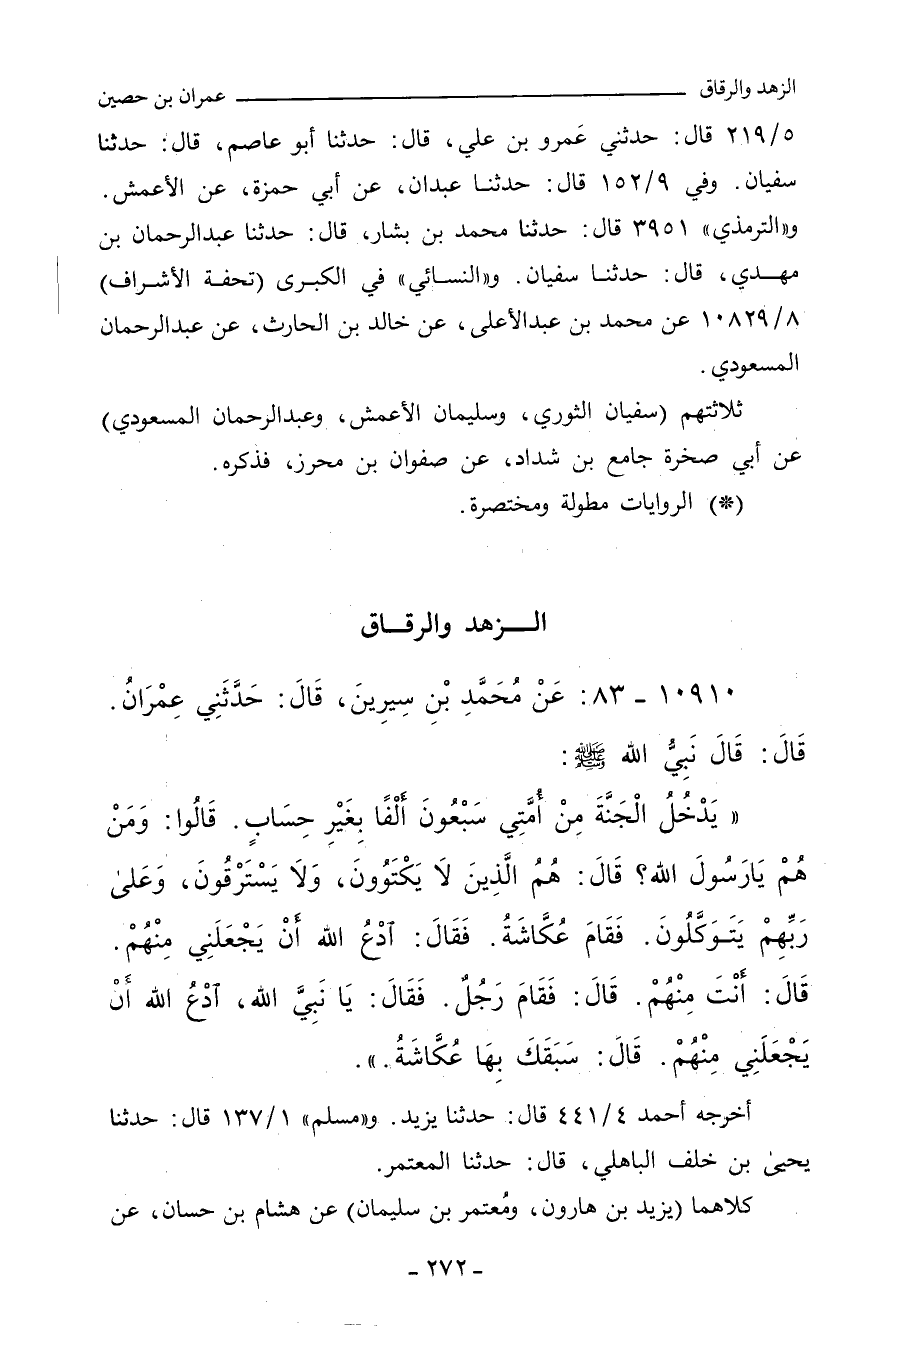 الزهد والرقاق ــــــــــــــــــــ عمران بن حصين
٢١٩/٥ قال: حدثني عَمرو بن علي، قال: حدثنا أبو عاصم، قال: حدثنا
سفيان. وفي ١٥٢/٩ قال: حدثنا عبدان، عن أبي حمزة، عن الأعمش.
و«الترمذي» ٣٩٥١ قال: حدثنا محمد بن بشار، قال: حدثنا عبدالرحمان بن
مهدي، قال: حدثنا سفيان. و«النسائي» في الكبرى (تحفة الأشراف)
١٠٨٢٩/٨ عن محمد بن عبدالأعلى، عن خالد بن الحارث، عن عبدالرحمان
المسعودي.
ثلاثتهم (سفيان الثوري، وسليمان الأعمش، وعبدالرحمان المسعودي)
عن أبي صخرة جامع بن شداد، عن صفوان بن محرز، فذكره.
(*) الروايات مطولة ومختصرة.
الـزهد والرقـاق
١٠٩١٠ - ٨٣: عَنْ مُحَمَّدِ بْنِ سِيرِينَ، قَالَ: حَدَّثَنِي عِمْرَانُ.
قَالَ: قَالَ نَبِيُّ الله ﷺ:
« يَدْخُلُ الْجَنَّةَ مِنْ أُمَّتِي سَبْعُونَ أَلْفًا بِغَيْرِ حِسَابٍ. قَالُوا: وَمَنْ
هُمْ يَارَسُولَ الله؟ قَالَ: هُمُ الَّذِينَ لَا يَكْتَوُونَ، وَلَا يَسْتَرْقُونَ، وَعَلىٰ
رَبِّهِمْ يَتَوَكَّلُونَ. فَقَامَ عُكَّاشَةُ. فَقَالَ: ٱدْعُ الله أَنْ يَجْعَلَنِي مِنْهُمْ.
قَالَ: أَنْتَ مِنْهُمْ. قَالَ: فَقَامَ رَجُلٌ. فَقَالَ: يَا نَبِيَّ الله، ٱدْعُ الله أَنْ
يَجْعَلَنِي مِنْهُمْ. قَالَ: سَبَقَكَ بِهَا عُكَّاشَةُ.».
أخرجه أحمد ٤٤١/٤ قال: حدثنا يزيد. و«مسلم» ١٣٧/١ قال: حدثنا
يحيىٰ بن خلف الباهلي، قال: حدثنا المعتمر.
كلاهما (يزيد بن هارون، ومُعتمر بن سليمان) عن هشام بن حسان، عن
- ٢٧٢ -